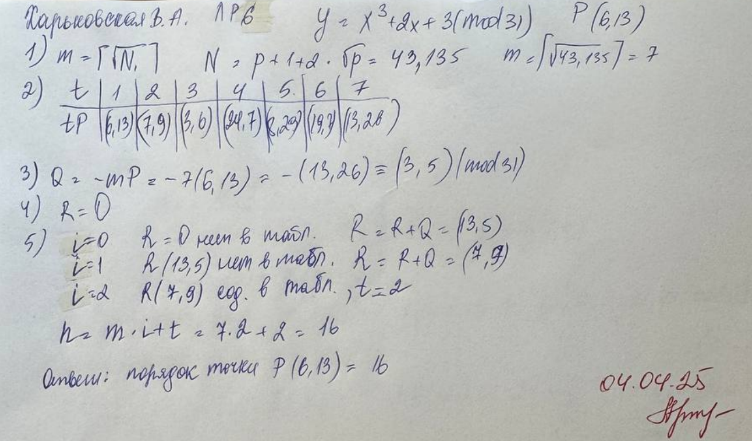 Харьковская В.А. ЛР6 y = x³+2x+3(mod31) P(6,13)
1) m = ⌈√N⌉ N = p+1+2·√p = 43,135 m = ⌈√43,135⌉ = 7
2) t | 1 | 2 | 3 | 4 | 5 | 6 | 7
tP | (6,13) | (7,9) | (3,6) | (24,7) | 29) | (19, | (13,
3) Q = -mP = -7(6,13) = -(13,26) = 5) (mod31)
4) R = O
5) i=0 R=O нет в табл. R = R+Q = (13,5)
i=1 R(13,5) нет в табл. R = R+Q = (7,9)
i=2 R(7,9) сод. в табл., t=2
n = m·i+t = 7·2+2 = 16
Ответ: порядок точки P(6,13) = 16
04.04.25